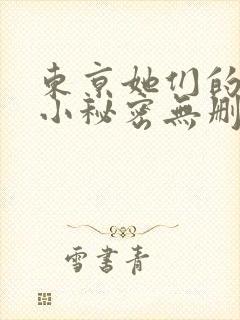 東京她们的
小秘密無删
雪書青